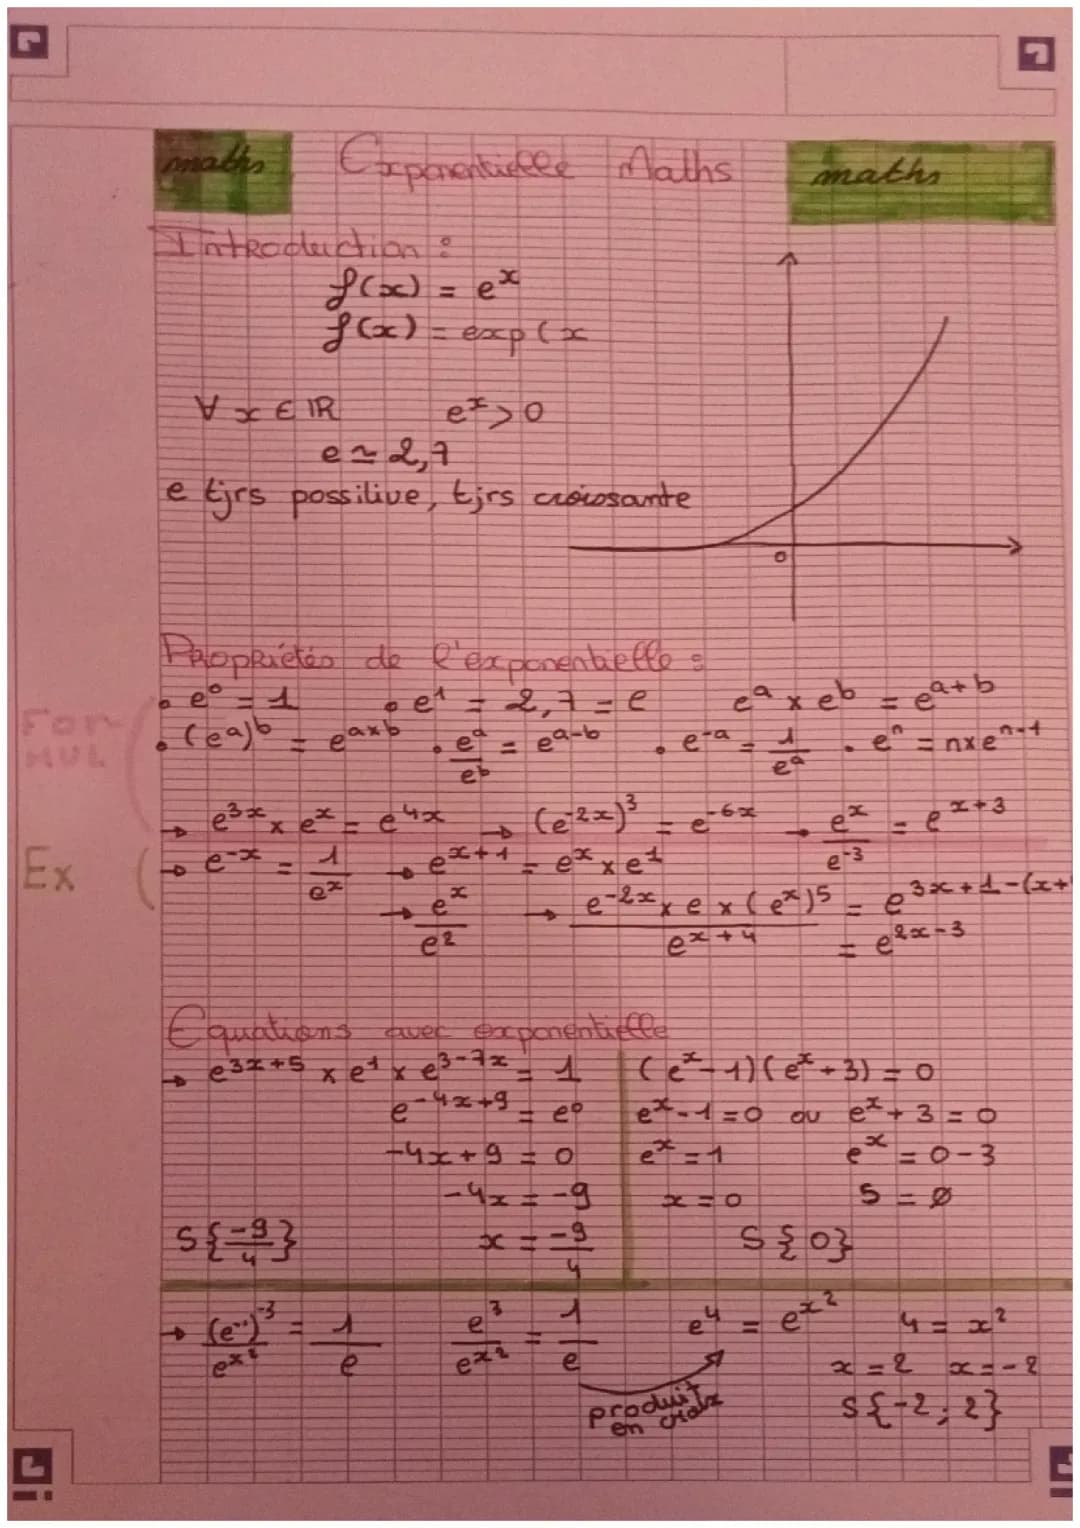 maths Exponentielle Maths maths
Introduction :
f(x) = e^x
f(x) = exp(x
∀ x ∈ ℝ e^x > 0
e ≃ 2,7
e tjrs possilive, tjrs croissante
0
Propriétés de l'exponentielle :
FORMUL
• e^0 = 1 • e^1 = 2,7 = e e^a × e^b = e^{a+b}
• (e^a)^b = e^{a×b} • e^a/e^b = e^{a-b} • e^{-a} = 1/e^a • e^n = n×e^{n-1}
→ e^{3x} × e^x = e^{4x} → (e^{-2x})^3 = e^{-6x} → e^x/e^{-3} = e^{x+3}
Ex
→ e^{-x} = 1/e^x → e^{x+1} = e^x × e^1
→ e^x/e^2 → e^{-2x} × e × (e^x)^5/e^{x+4} = e^{3x+1-(x+
= e^{2x-3}
Equations avec exponentielle
→ e^{3x+5} × e^1 × e^{3-7x} = 1 (e^x - 1)(e^x + 3) = 0
e^{-4x+9} = e^0 e^x - 1 = 0 ou e^x + 3 = 0
-4x + 9 = 0 e^x = 1 e^x = 0 - 3
-4x = -9 x = 0 S = ∅
S{-9/4} x = -9/4 S{0}
→ (e^{-1})^{-3}/e^{x^2} = 1/e e^3/e^{x^2} = 1/e e^4 = e^{x^2} 4 = x^2
x = 2 x = -2
produit en croix S{-2; 2}